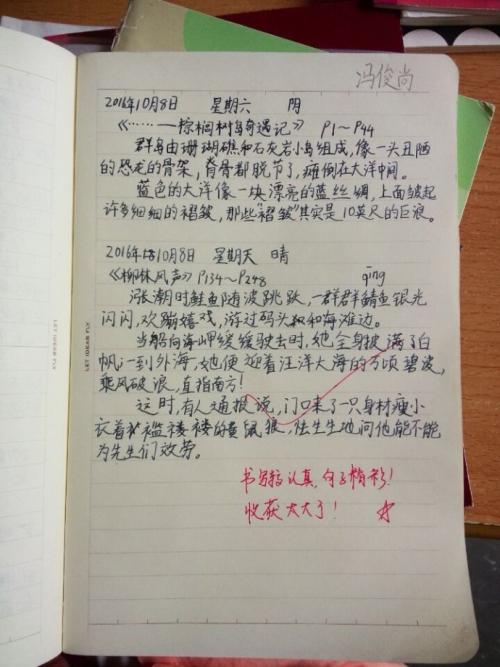 冯俊尚
2016年10月8日 星期六 阴
《……——棕榈树岛奇遇记》 P1~P44
群岛由珊瑚礁和石灰岩小岛组成,像一头丑陋
的恐龙的骨架,脊骨都脱节了,瘫倒在大洋中间。
蓝色的大洋像一块漂亮的蓝丝绸,上面皱起
许多细细的褶皱,那些“褶皱”其实是10英尺的巨浪。
2016年10月8日 星期天 晴
《柳林风声》P134~P248
qīng
涨潮时鲑鱼随波跳跃,一群群鲭鱼银光
闪闪,欢蹦嬉戏,游过码头和海滩边。
当船向海岬缓缓驶去时,她全身披满了白
帆,一到外海,她便迎着汪洋大海的万顷碧波,
乘风破浪,直指南方!
这时,有人通报说,门口来了一只身材瘦小
衣着褴褛的黄鼠狼,怯生生地问他能不能
为先生们效劳。
书写认真,句子精彩!
收获太大了!
LET IDEAS FLY